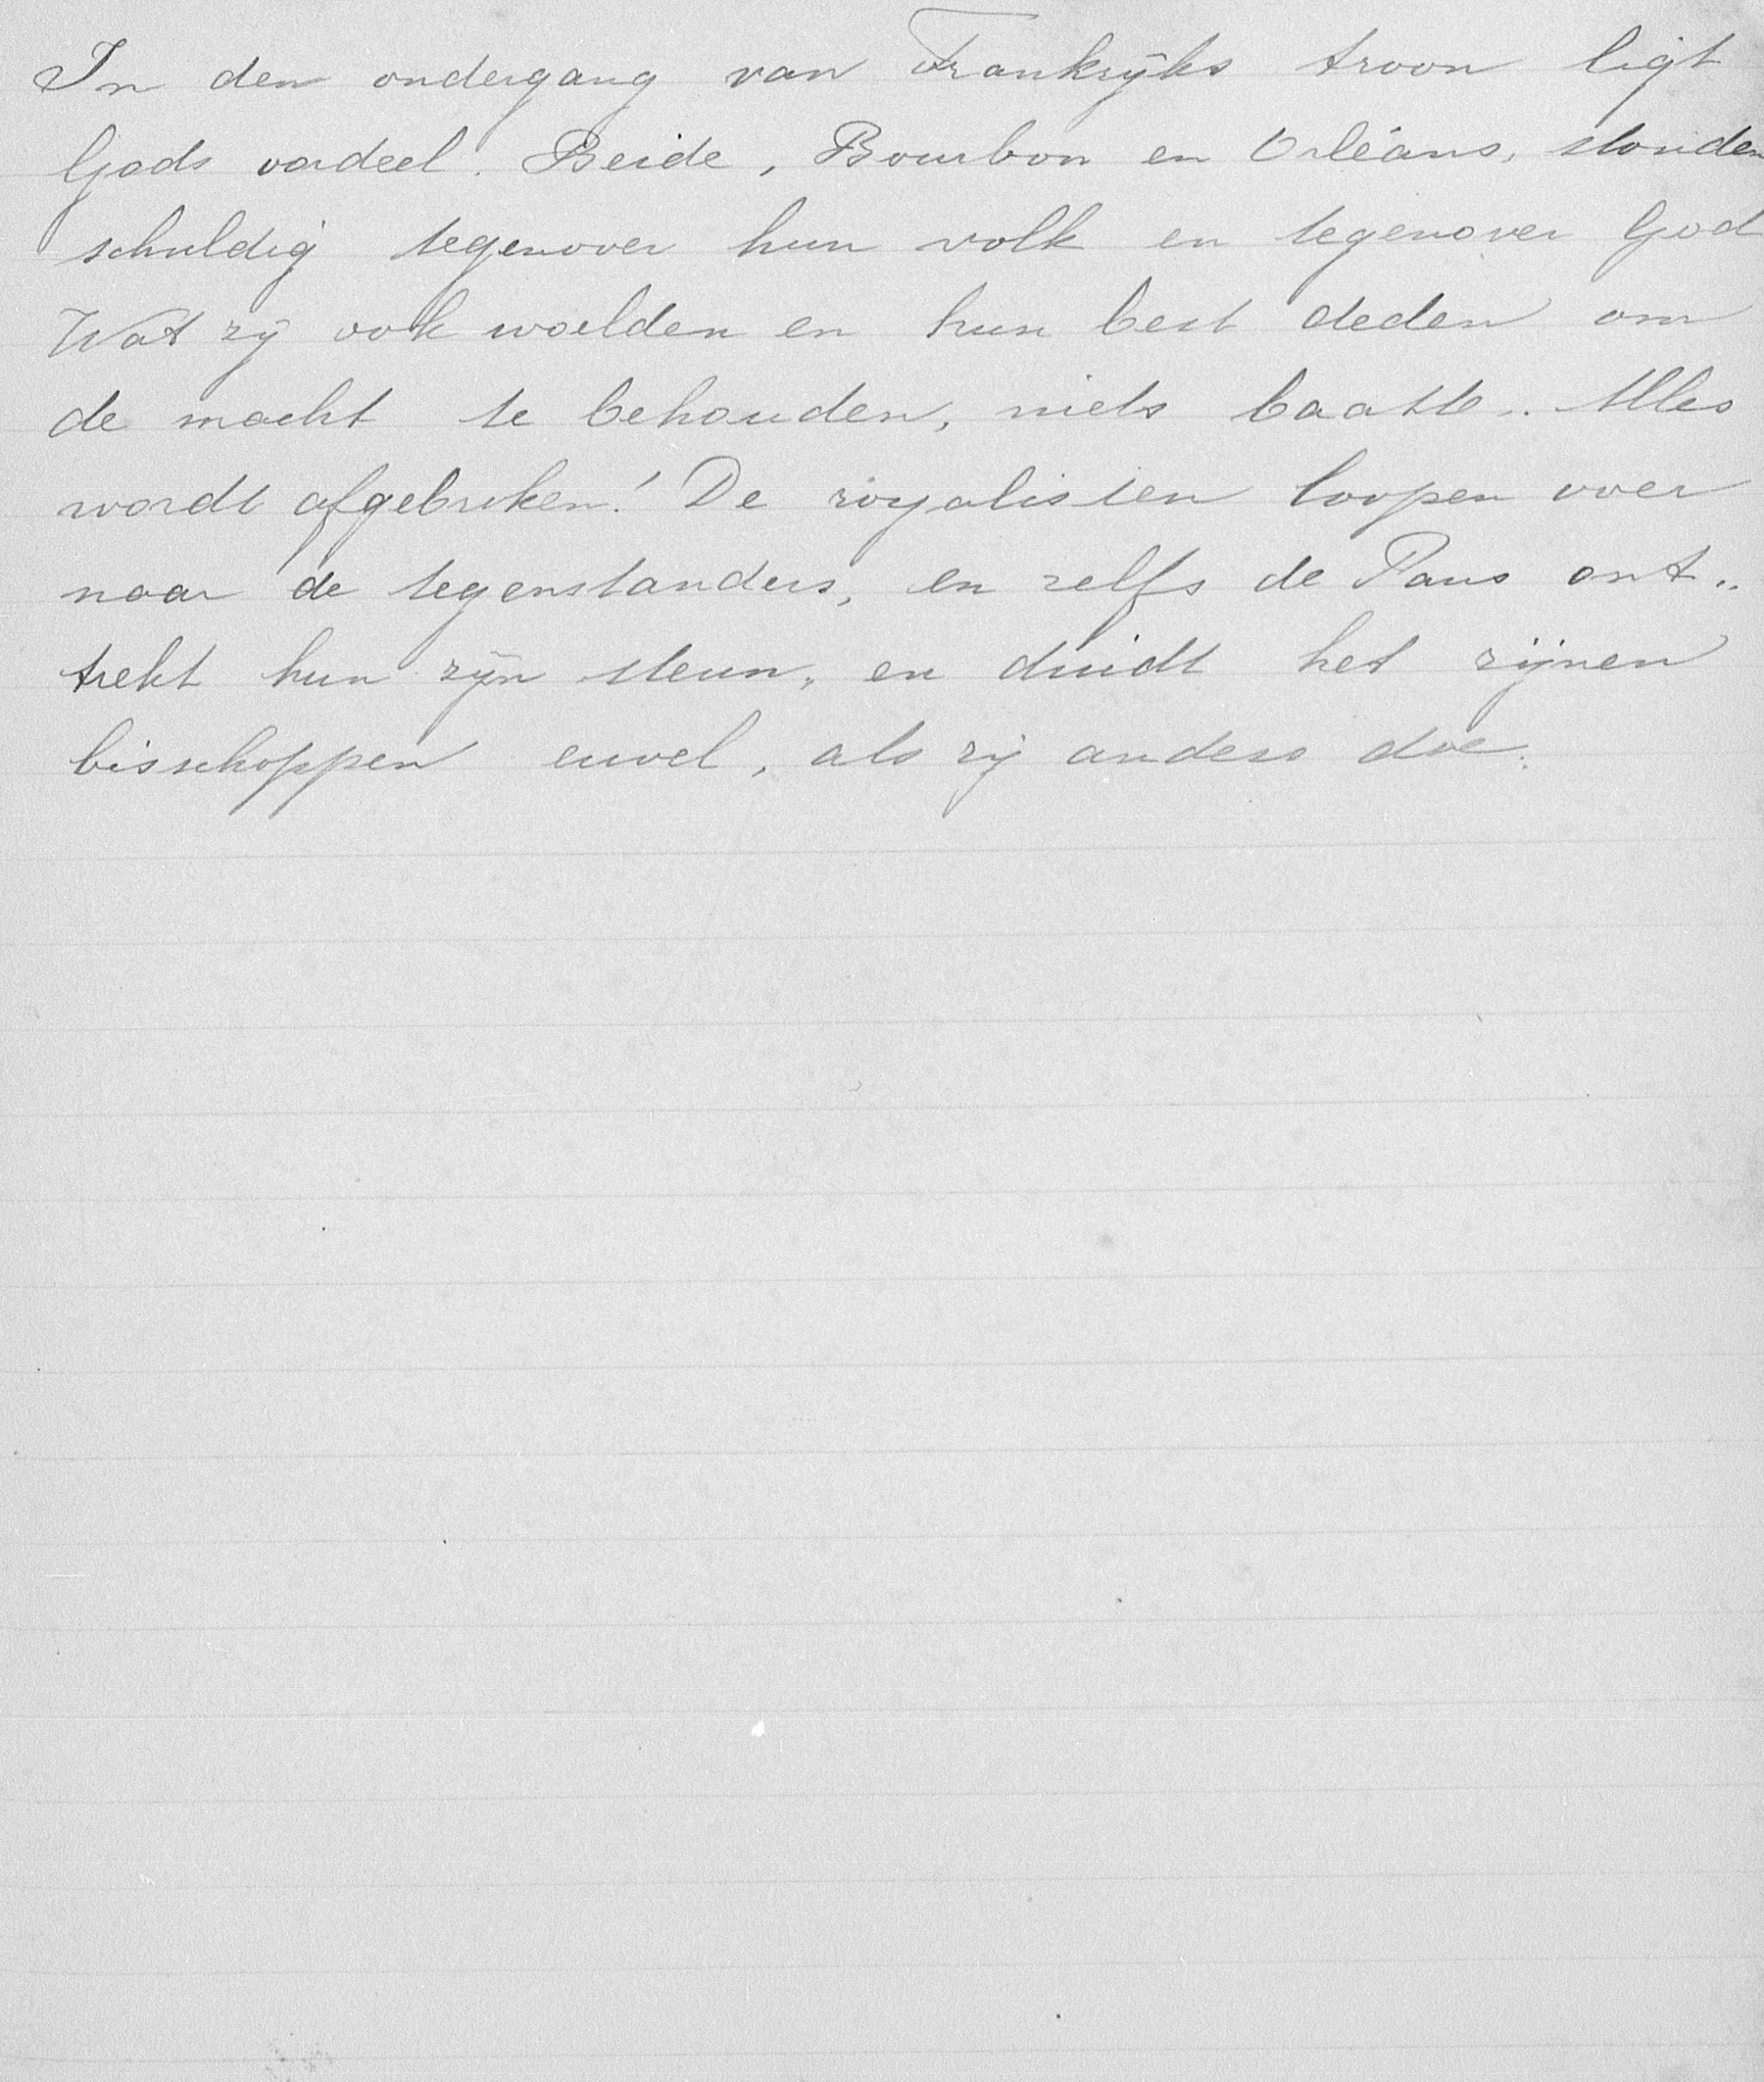 In den ondergang van Frankrijks troon ligt
Gods oordeel. Beide, Bourbon en Orléans, stonden
schuldig tegenover hun volk en tegenover God
Wat zij ook woelden en hun best deden om
de macht te behouden, niets baatte. Alles
wordt afgebroken! De royalisten loopen over
naar de tegenstanders, en zelfs de Paus ont„
trekt hun zijn steun, en duidt het zijnen
bisschoppen euvel, als zij anders doe.